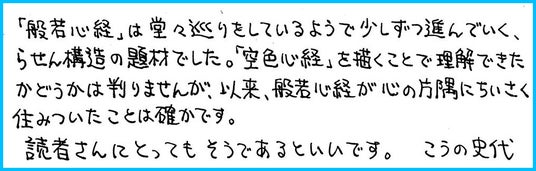 「般若心経」は堂々巡りをしているようで少しずつ進んでいく、
らせん構造の題材でした。「空色心経」を描くことで理解できた
かどうかは判りませんが、以来、般若心経が心の片隅にちいさく
住みついたことは確かです。
読者さんにとってもそうであるといいです。 こうの史代